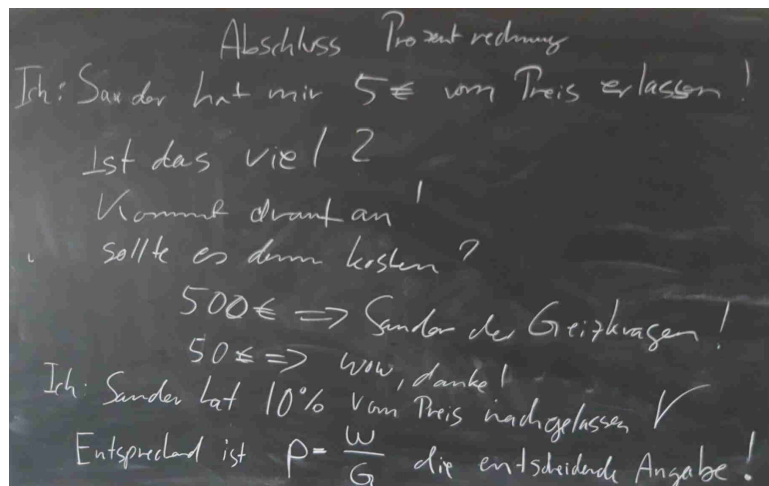 Abschluss Prozentrechnung
Ich: Sander hat mir 5€ vom Preis erlassen!
Ist das viel?
Kommt drauf an!
sollte es denn kosten?
500€ => Sander der Geizkragen!
50€ => wow, danke!
Ich: Sander hat 10% vom Preis nachgelassen
Entsprechend ist p = W/G die entscheidende Angabe!